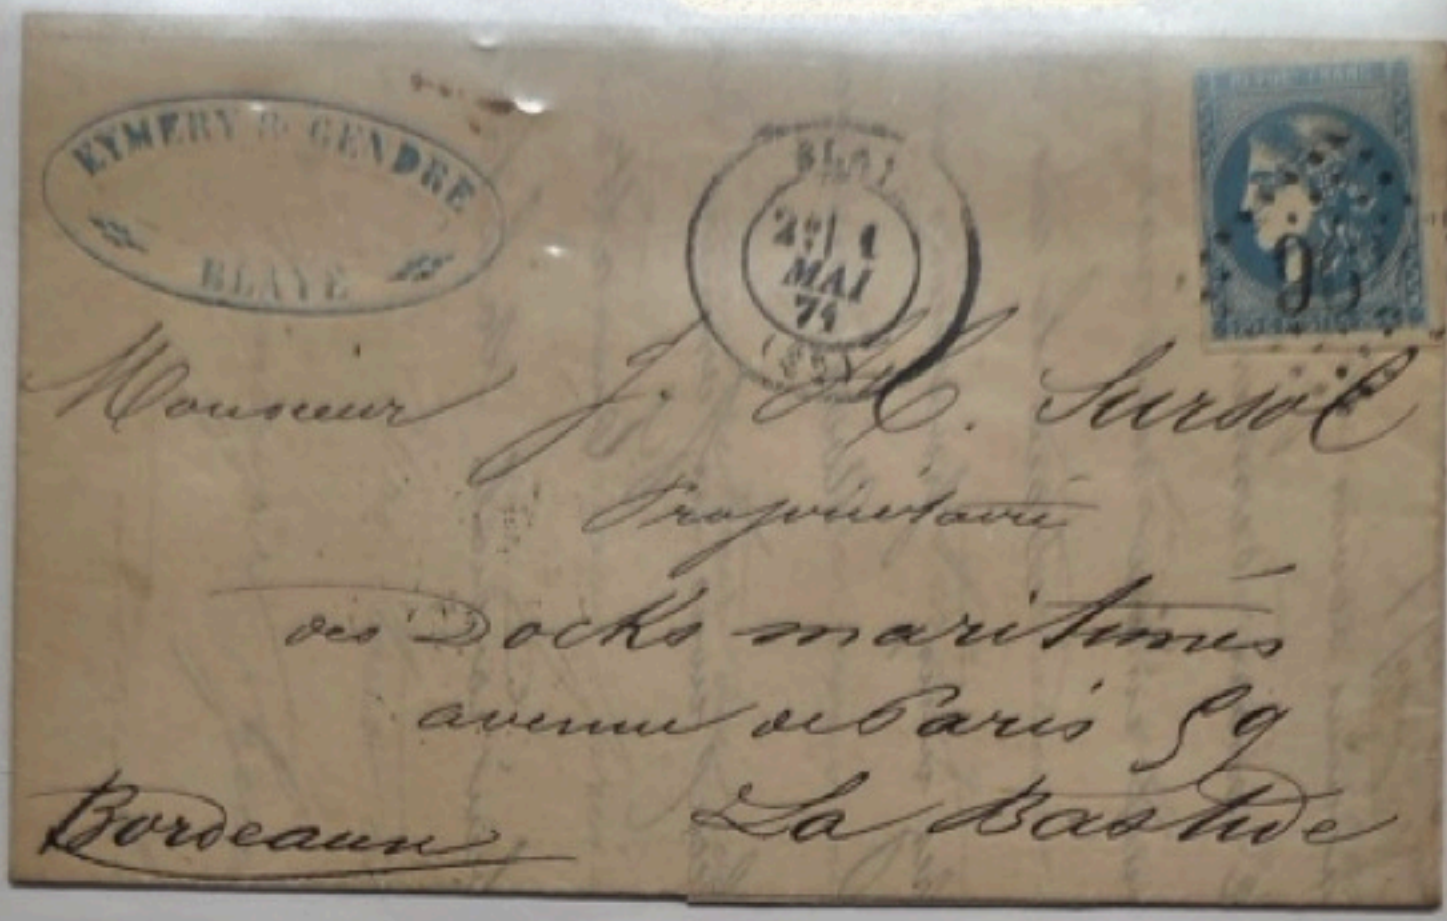 EYMERY & GENDRE
BLAYE
2E 1
MAI
71
Monsieur J. H. Sursol
Propriétaire
des Docks maritimes
avenue de Paris 59
La Bastide
Bordeaux